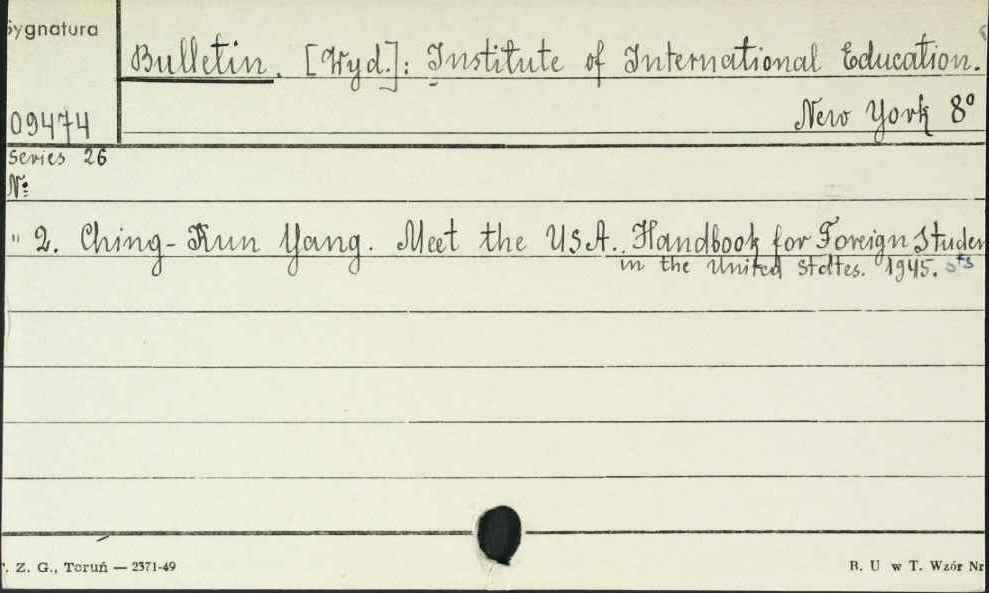 Sygnatura
Bulletin. [Wyd.]: Institute of International Education.
09474
New York 8°
Series 26
№:
" 2. Ching-Kun Yang. Meet the USA. Handbook for Foreign Studen
ts
in the United States. 1945.
. Z. G., Toruń — 2371-49
R. U w T. Wzór Nr